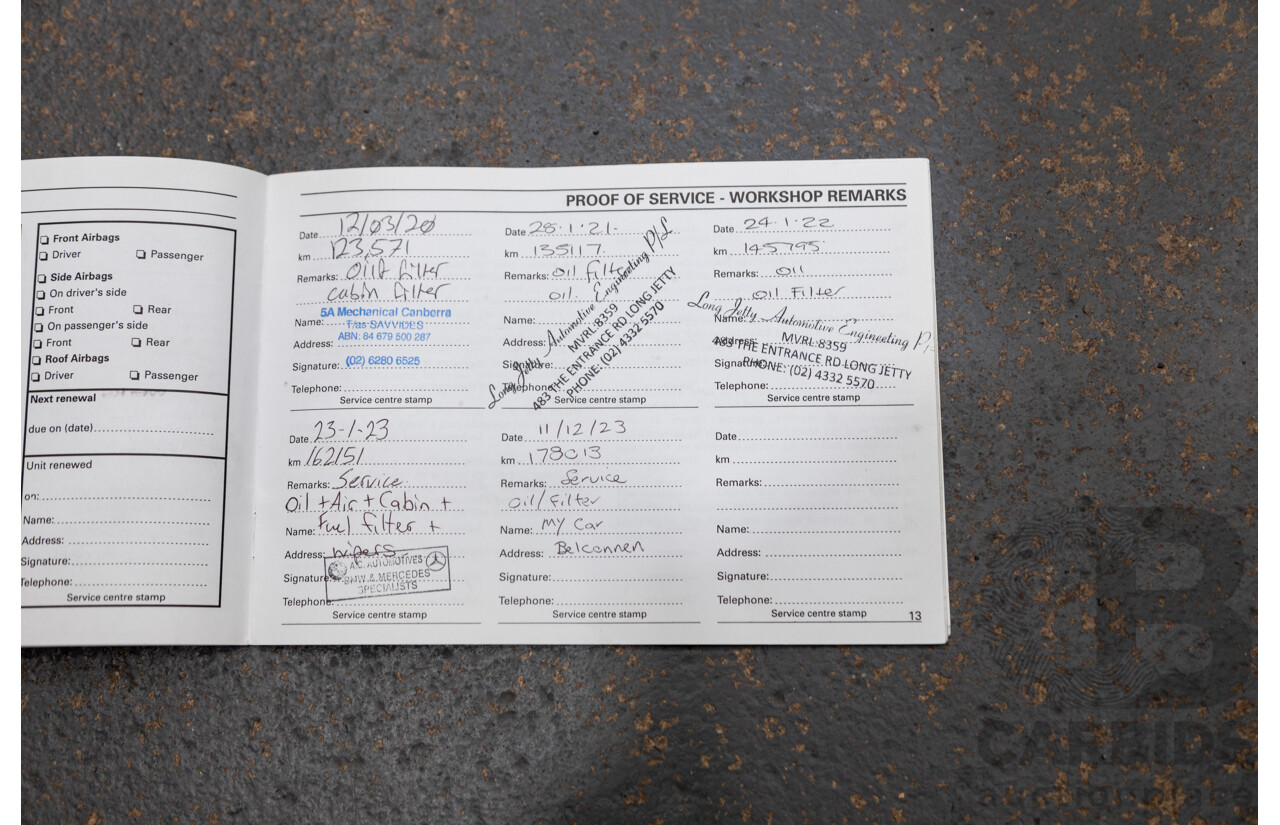 Front Airbags
Driver Passenger
Side Airbags
On driver's side
Front Rear
On passenger's side
Front Rear
Roof Airbags
Driver Passenger
Next renewal
due on (date)
Unit renewed
on:
Name:
Address:
Signature:
Telephone:
Service centre stamp
PROOF OF SERVICE - WORKSHOP REMARKS
Date 12/03/20
km 123,571
Remarks: Oil+ filter
cabin filter
5A Mechanical Canberra
Name: T/as SAVVIDES
ABN: 84 679 500 287
Address:
Signature: (02) 6280 6525
Telephone:
Service centre stamp
Date 28.1.21.
km 135117.
Remarks: Oil Filter
oil.
Name:
Address:
Signature:
Telephone:
Long Jetty Automotive Engineering P/L
MVRL:8359
483 THE ENTRANCE RD LONG JETTY
PHONE: (02) 4332 5570
Service centre stamp
Date 24.1.22
km 145795
Remarks: Oil
Oil Filter
Name:
Address:
Signature:
Telephone:
Long Jetty Automotive Engineering P/
MVRL:8359
483 THE ENTRANCE RD LONG JETTY
PHONE: (02) 4332 5570
Service centre stamp
Date 23-1-23
km 162151
Remarks: Service
Oil + Air + Cabin +
Name: Fuel filter +
Address: wipers
A.C. AUTOMOTIVES
Signature: BMW & MERCEDES
SPECIALISTS
Telephone:
Service centre stamp
Date 11/12/23
km 178013
Remarks: Service
Oil/Filter
Name: My Car
Address: Belconnen
Signature:
Telephone:
Service centre stamp
Date
km
Remarks:
Name:
Address:
Signature:
Telephone:
Service centre stamp
13
CARBIDS
auctionplace